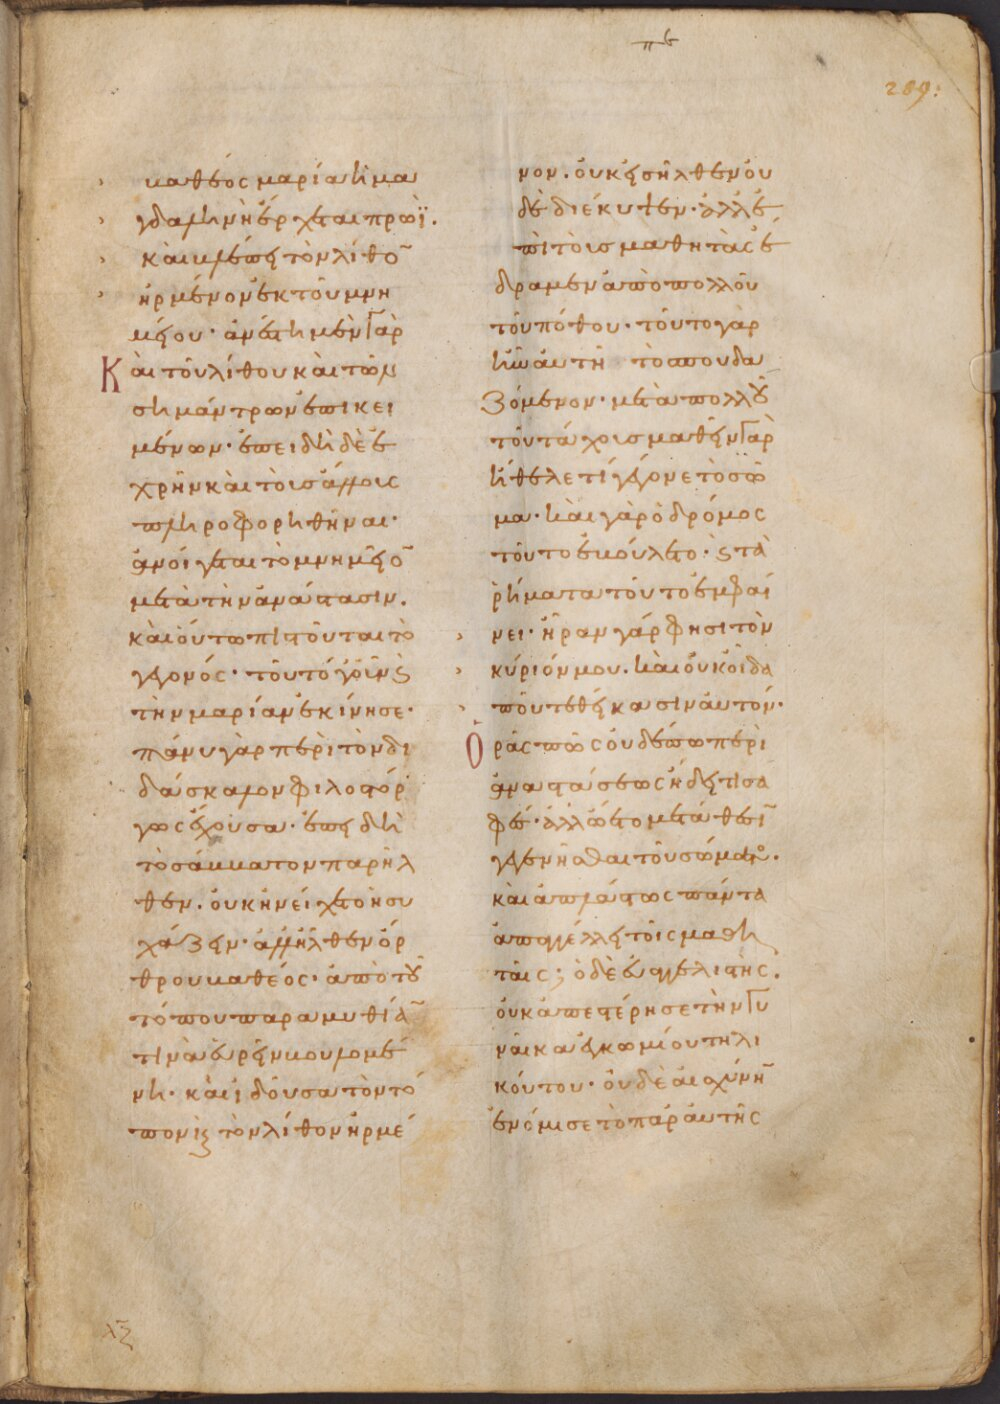 πϛ
289:
καθεός μαρία ἡ μα
γδαληνὴ ἔρχεται πρωῒ.
καὶ βλέπει τὸν λίθο̅
ἠρμένον ἐκ τοῦ μνη
μείου· ἀνέστη μὲν γὰρ
Καὶ τοῦ λίθου καὶ τῶν
σημάντρων ἐπικει
μένων· ἐπειδὴ δὲ ἐ
χρῆν καὶ τοῖς ἄλλοις
πληροφορηθῆναι·
ἀνοίγεται τὸ μνημεῖο̅
μετὰ τὴν ἀνάστασιν.
καὶ οὕτω πιστοῦται τὸ
γεγονός· τοῦτό γοῦν ϗ
τὴν μαρίαν ἐκίνησε·
πάνυ γὰρ περὶ τὸν δι
δάσκαλον φιλοστόρ
γως ἔχουσα· ἐπειδὴ
τὸ σάββατον παρῆλ
θεν. οὐκ ἠνείχετο ἡσυ
χάζειν· ἀλλ' ἦλθεν ὄρ
θρου βαθέος· ἀπὸ τοῦ
τόπου παραμυθία̅
τινὰ εὑρεῖν βουλομέ
νη· καὶ ἰδοῦσα τὸν τό
πον ϗ τὸν λίθον ἠρμέ
νον. οὐκ εἰσῆλθεν οὐ
δὲ διέκυψεν· ἀλλ' ἐ
πὶ τοὺς μαθητὰς ἔ
δραμεν ἀπὸ πολλοῦ
τοῦ πόθου· τοῦτο γὰρ
ἦν αὐτῇ τὸ σπουδα
ζόμενον· μετὰ πολλοῦ
τοῦ τάχους μαθεῖν γὰρ
ἤθελε τί γέγονε τὸ σῶ
μα· καὶ γὰρ ὁ δρόμος
τοῦτο ἐβούλετο· ϗ τὰ
ῥήματα τοῦτο ἐμφαί
νει· ἦραν γάρ φησι τὸν
κύριόν μου. καὶ οὐκ οἶδα
ποῦ τεθείκασιν αὐτόν·
Ὁρᾶς πῶς οὐδέπω περὶ
ἀναστάσεως ᾔδει τι σα
φέσ· ἀλλ' ᾤετο μετάθεσι̅
γεγενῆσθαι τοῦ σώματος.
καὶ ἀπλάστως πάντα
ἀπαγγέλλει τοῖς μαθη
ταῖς; ὁ δὲ εὐαγγελιστὴς.
οὐκ ἀπεστέρησε τὴν γυ
ναῖκα ἐγκωμίου τηλι
κούτου· οὐδὲ αἰσχύνη̅
ἐνόμισε τὸ παρ' αὐτῆς
λξ